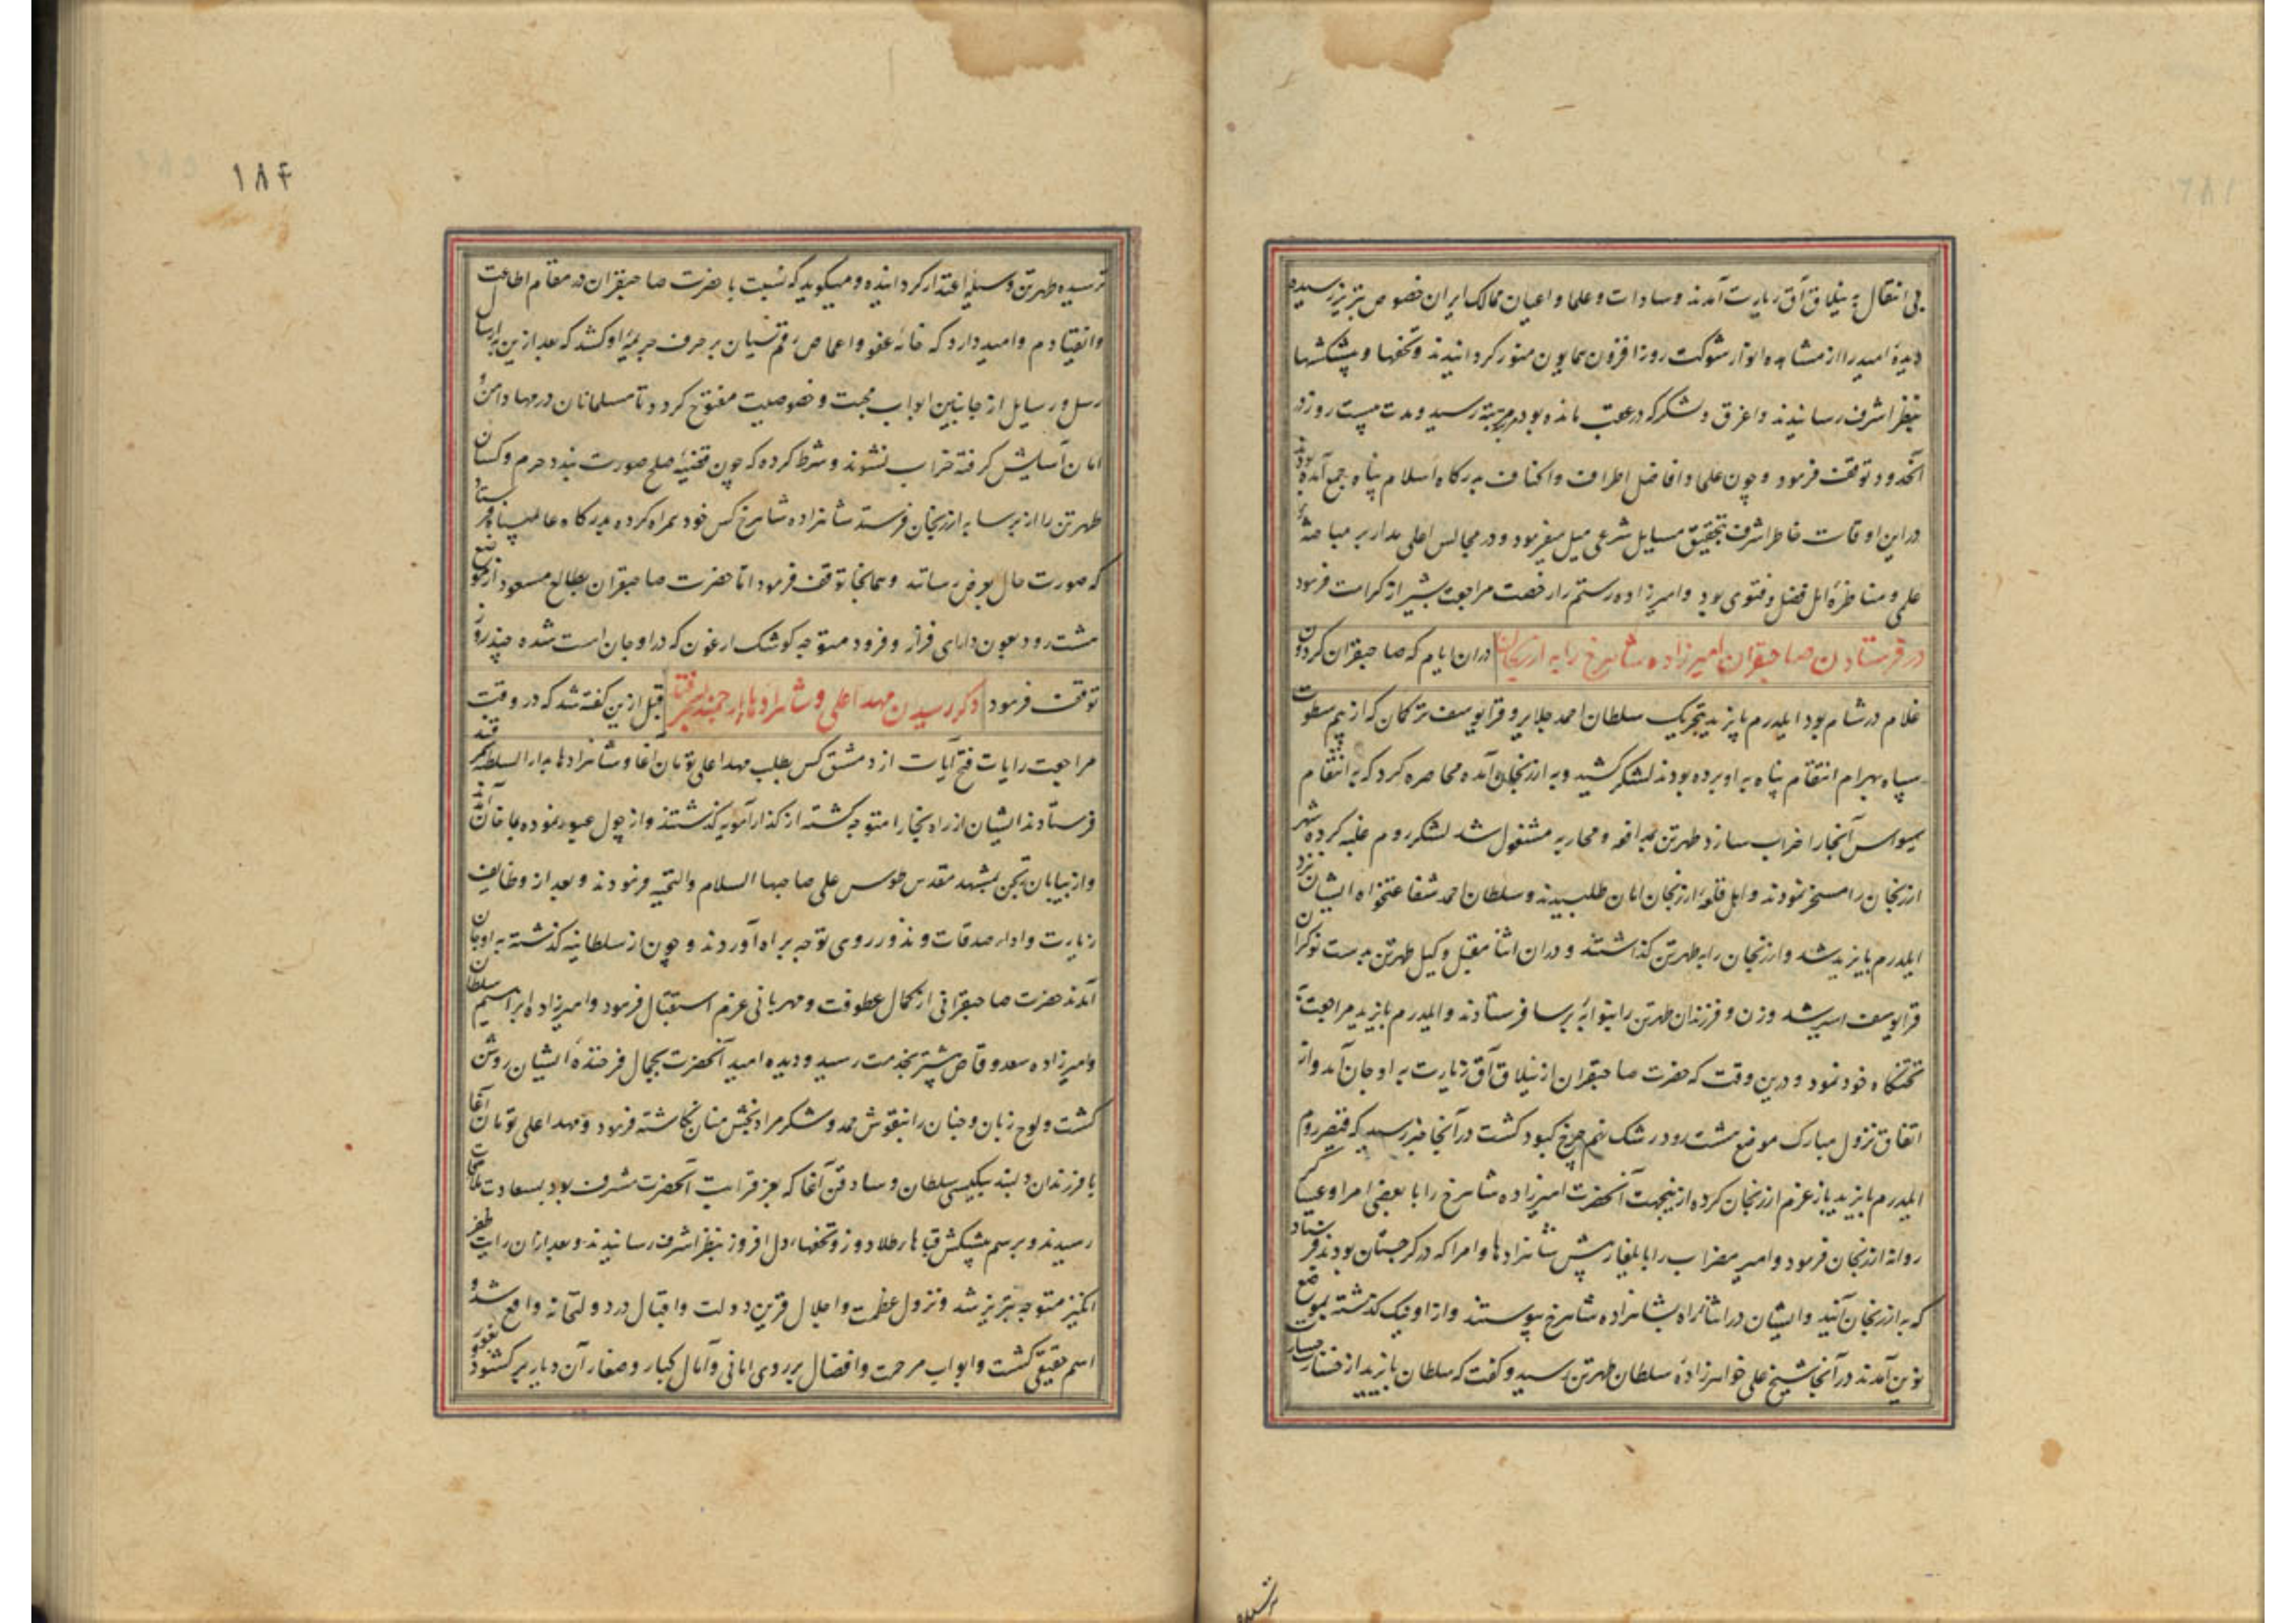 پی انتقال به ییلاق آق زیارت آمدند و سادات و علما و اعیان ممالک ایران خصوص تبریز رسیده
دیدهٔ امید را از مشاهده انوار شوکت روزافزون همایون منور کردانیدند و تحفها و پیشکشها
بنظر اشرف رسانیدند و اغرق و لشکر که در عقب مانده بود رسید و مدت بیست روز در
آنحدود توقف فرمود و چون علما و افاضل اطراف و اکناف بدرکاه اسلام پناه جمع آمده بودند
در این اوقات خاطر اشرف بتحقیق مسایل شرعی میل میفرمود و در مجالس اعلی مدار بر مباحثهٔ
علمی و مناظرهٔ اهل فضل و فتوی بود و امیرزاده رستم را رخصت مراجعت بشیراز کرامت فرمود
در فرستادن صاحبقران امیرزاده شاهرخ را به ارزنجان دران ایام که صاحبقران کردون
غلام در شام بود ایلدرم بایزید بتحریک سلطان احمد جلایر و قرایوسف ترکمان که از بیم سطوت
سپاه بهرام انتقام پناه به او برده بودند لشکر کشید و به ارزنجان آمده محاصره کرد که به انتقام
سیواس آنجا را خراب سازد طهرتن بمدافعه و محاربه مشغول شد لشکر روم غلبه کرده شهر
ارزنجان را مسخر نمودند و اهل قلعهٔ ارزنجان امان طلبیدند و سلطان احمد شفاعتخواه ایشان نزد
ایلدرم بایزید شد و ارزنجان را به طهرتن کذاشتند و دران اثنا مقبل وکیل طهرتن بدست نوکران
قرایوسف اسیر شد و زن و فرزندان طهرتن را بنوا به برسا فرستادند و ایلدرم بایزید مراجعت به
تختکاه خود نمود و درین وقت که حضرت صاحبقران از ییلاق آق زیارت به اوجان آمد و از
اتفاق نزول مبارک موضع هشت رود رشک نهم چرخ کبود کشت در آنجا خبر رسید که قیصر روم
ایلدرم بایزید باز عزم ارزنجان کرده ازینجهت آنحضرت امیرزاده شاهرخ را با بعضی امرا و عساکر
روانه ارزنجان فرمود و امیر مضراب را بایلغار پیش شاهزادها و امرا که در کرجستان بودند فرستاد
که به ارزنجان آیند و ایشان در اثنا راه بشاهزاده شاهرخ پیوستند و از اونیک کذشته بموضع
نوین آمدند در آنجا شیخ علی خواهرزادهٔ سلطان طهرتن رسید و کفت که سلطان بایزید از
ترسیده
۱۸۴
ترسیده طهرتن وسیله اعتذار کردانیده و میکوید که نسبت با حضرت صاحبقران در مقام اطاعت
و انقیادم و امید دارد که خامهٔ عفو و اغماض رقم نسیان بر حرف جریمهٔ او کشد که بعد ازین بارسال
رسل و رسایل از جانبین ابواب محبت و خصوصیت مفتوح کردد تا مسلمانان در مهاد امن و
امان آسایش کرفته خراب نشوند و شرط کرده که چون قضیهٔ صلح صورت بندد حرم و کسان
طهرتن را از برسا به ارزنجان فرستد شاهزاده شاهرخ کس خود همراه کرده بدرکاه عالمپناه فرستاد
که صورت حال بعرض رساند و همانجا توقف فرمود اما حضرت صاحبقران بطالع مسعود از موضع
هشت رود بعون دارای فراز و فرود متوجه کوشک ارغون که در اوجان است شده چند روز
توقف فرمود ذکر رسیدن مهد اعلی و شاهزادهای ارجمند قبل ازین کفته شد که در وقت
مراجعت رایات فتح آیات از دمشق کس بطلب مهد اعلی تومان آغا و شاهزادها بدار السلطنه سمرقند
فرستادند ایشان از راه بخارا متوجه کشته از کذار آمویه کذشتند و از چول عبور نموده بماخان آمدند
و از بیابان تجن بمشهد مقدس طوس علی صاحبها السلام و التحیه فرمودند و بعد از وظایف
زیارت و ادا صدقات و نذور روی توجه براه آوردند و چون از سلطانیه کذشته به اوجان
آمدند حضرت صاحبقرانی از کمال عطوفت و مهربانی عزم استقبال فرمود و امیرزاده ابراهیم سلطان
و امیرزاده سعد وقاص پیشتر بخدمت رسید و دیده امید آنحضرت بجمال فرخندهٔ ایشان روشن
کشت و لوح زبان و جنان را بنقوش حمد و شکر مرادبخش منان نکاشته فرمود و مهد اعلی تومان آغا
با فرزندان دلبند بیکیسی سلطان و سادقن آغا که بعز قرابت آنحضرت مشرف بود بسعادت ملاقات
رسیدند و برسم پیشکش قباها طلادوز و تحفهای دل افروز بنظر اشرف رسانیدند و بعد ازان رایت ظفر
انکیز متوجه تبریز شد و نزول عظمت و اجلال قرین دولت و اقبال در دولتخانه واقع شد و
اسم حقیقی کشت و ابواب مرحمت و افضال بر روی امانی و آمال کبار و صغار آن دیار برکشود